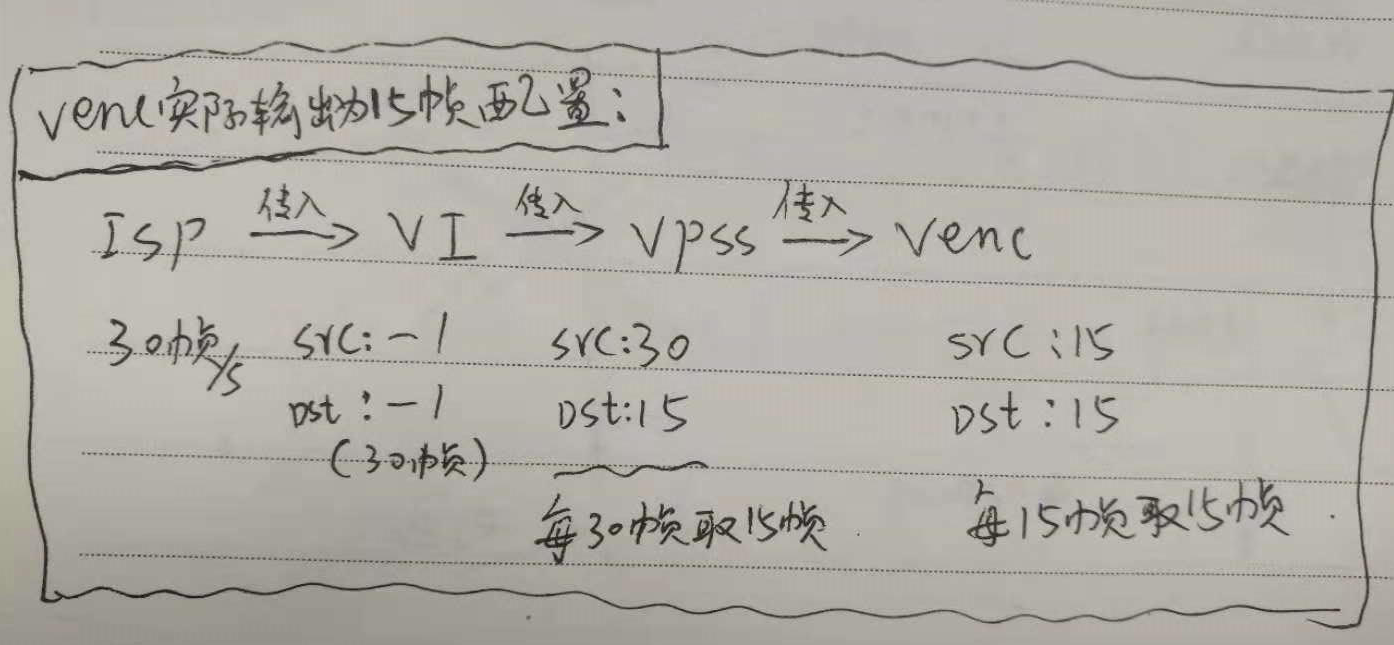 venc实际输出为15帧配置:
Isp 传入 VI 传入 Vpss 传入 venc
30帧/s src:-1 src:30 src:15
Dst:-1 Dst:15 Dst:15
(30帧)
每30帧取15帧 每15帧取15帧.